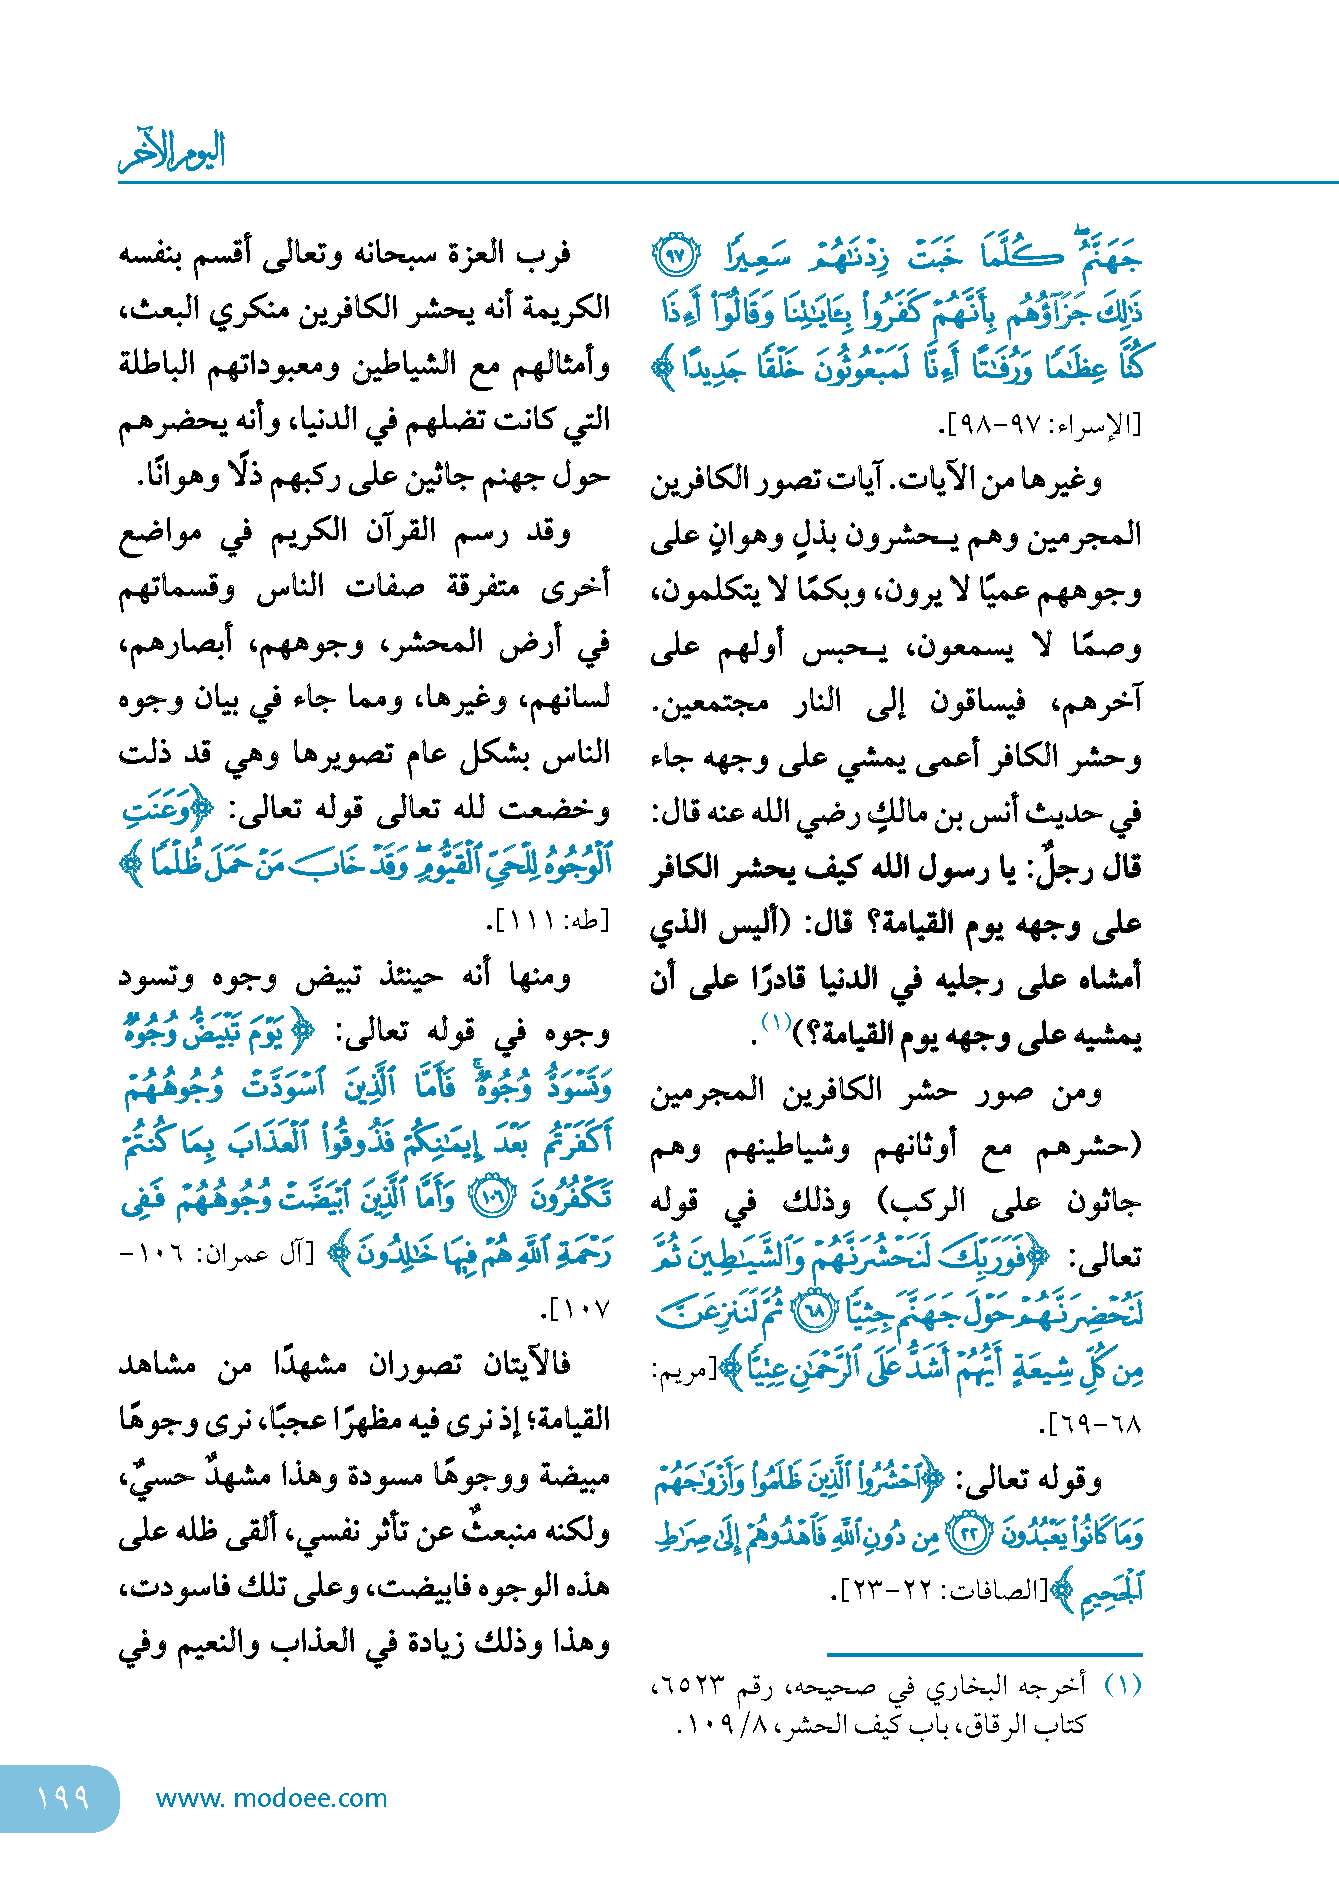 اليوم الآخر
جَهَنَّمُ ۖ كُلَّمَا خَبَتْ زِدْنَٰهُمْ سَعِيرًا ﴿٩٧﴾
ذَٰلِكَ جَزَآؤُهُم بِأَنَّهُمْ كَفَرُوا۟ بِـَٔايَٰتِنَا وَقَالُوٓا۟ أَءِذَا
كُنَّا عِظَٰمًا وَرُفَٰتًا أَءِنَّا لَمَبْعُوثُونَ خَلْقًا جَدِيدًا ﴾
[الإسراء: ٩٧-٩٨].
وغيرها من الآيات. آيات تصور الكافرين
المجرمين وهم يـحشرون بذلٍ وهوانٍ على
وجوههم عميًا لا يرون، وبكمًا لا يتكلمون،
وصمًا لا يسمعون، يـحبس أولهم على
آخرهم، فيساقون إلى النار مجتمعين.
وحشر الكافر أعمى يمشي على وجهه جاء
في حديث أنس بن مالكٍ رضي الله عنه قال:
قال رجلٌ: يا رسول الله كيف يحشر الكافر
على وجهه يوم القيامة؟ قال: (أليس الذي
أمشاه على رجليه في الدنيا قادرًا على أن
يمشيه على وجهه يوم القيامة؟)(١).
ومن صور حشر الكافرين المجرمين
(حشرهم مع أوثانهم وشياطينهم وهم
جاثون على الركب) وذلك في قوله
تعالى: ﴿فَوَرَبِّكَ لَنَحْشُرَنَّهُمْ وَٱلشَّيَٰطِينَ ثُمَّ
لَنُحْضِرَنَّهُمْ حَوْلَ جَهَنَّمَ جِثِيًّا ﴿٦٨﴾ ثُمَّ لَنَنزِعَنَّ
مِن كُلِّ شِيعَةٍ أَيُّهُمْ أَشَدُّ عَلَى ٱلرَّحْمَٰنِ عِتِيًّا ﴾[مريم:
٦٨-٦٩].
وقوله تعالى: ﴿ٱحْشُرُوا۟ ٱلَّذِينَ ظَلَمُوا۟ وَأَزْوَٰجَهُمْ
وَمَا كَانُوا۟ يَعْبُدُونَ ﴿٢٢﴾ مِن دُونِ ٱللَّهِ فَٱهْدُوهُمْ إِلَىٰ صِرَٰطِ
ٱلْجَحِيمِ ﴾[الصافات: ٢٢-٢٣].
(١) أخرجه البخاري في صحيحه، رقم ٦٥٢٣،
كتاب الرقاق، باب كيف الحشر، ٨/ ١٠٩.
فرب العزة سبحانه وتعالى أقسم بنفسه
الكريمة أنه يحشر الكافرين منكري البعث،
وأمثالهم مع الشياطين ومعبوداتهم الباطلة
التي كانت تضلهم في الدنيا، وأنه يحضرهم
حول جهنم جاثين على ركبهم ذلًا وهوانًا.
وقد رسم القرآن الكريم في مواضع
أخرى متفرقة صفات الناس وقسماتهم
في أرض المحشر، وجوههم، أبصارهم،
لسانهم، وغيرها، ومما جاء في بيان وجوه
الناس بشكل عام تصويرها وهي قد ذلت
وخضعت لله تعالى قوله تعالى: ﴿وَعَنَتِ
ٱلْوُجُوهُ لِلْحَىِّ ٱلْقَيُّومِ ۖ وَقَدْ خَابَ مَنْ حَمَلَ ظُلْمًا ﴾
[طه: ١١١].
ومنها أنه حينئذ تبيض وجوه وتسود
وجوه في قوله تعالى: ﴿ يَوْمَ تَبْيَضُّ وُجُوهٌ
وَتَسْوَدُّ وُجُوهٌ ۚ فَأَمَّا ٱلَّذِينَ ٱسْوَدَّتْ وُجُوهُهُمْ
أَكَفَرْتُم بَعْدَ إِيمَٰنِكُمْ فَذُوقُوا۟ ٱلْعَذَابَ بِمَا كُنتُمْ
تَكْفُرُونَ ﴿١٠٦﴾ وَأَمَّا ٱلَّذِينَ ٱبْيَضَّتْ وُجُوهُهُمْ فَفِى
رَحْمَةِ ٱللَّهِ هُمْ فِيهَا خَٰلِدُونَ ﴾ [آل عمران: ١٠٦-
١٠٧].
فالآيتان تصوران مشهدًا من مشاهد
القيامة؛ إذ نرى فيه مظهرًا عجبًا، نرى وجوهًا
مبيضة ووجوهًا مسودة وهذا مشهدٌ حسيٌ،
ولكنه منبعثٌ عن تأثر نفسي، ألقى ظله على
هذه الوجوه فابيضت، وعلى تلك فاسودت،
وهذا وذلك زيادة في العذاب والنعيم وفي
١٩٩
www. modoee.com